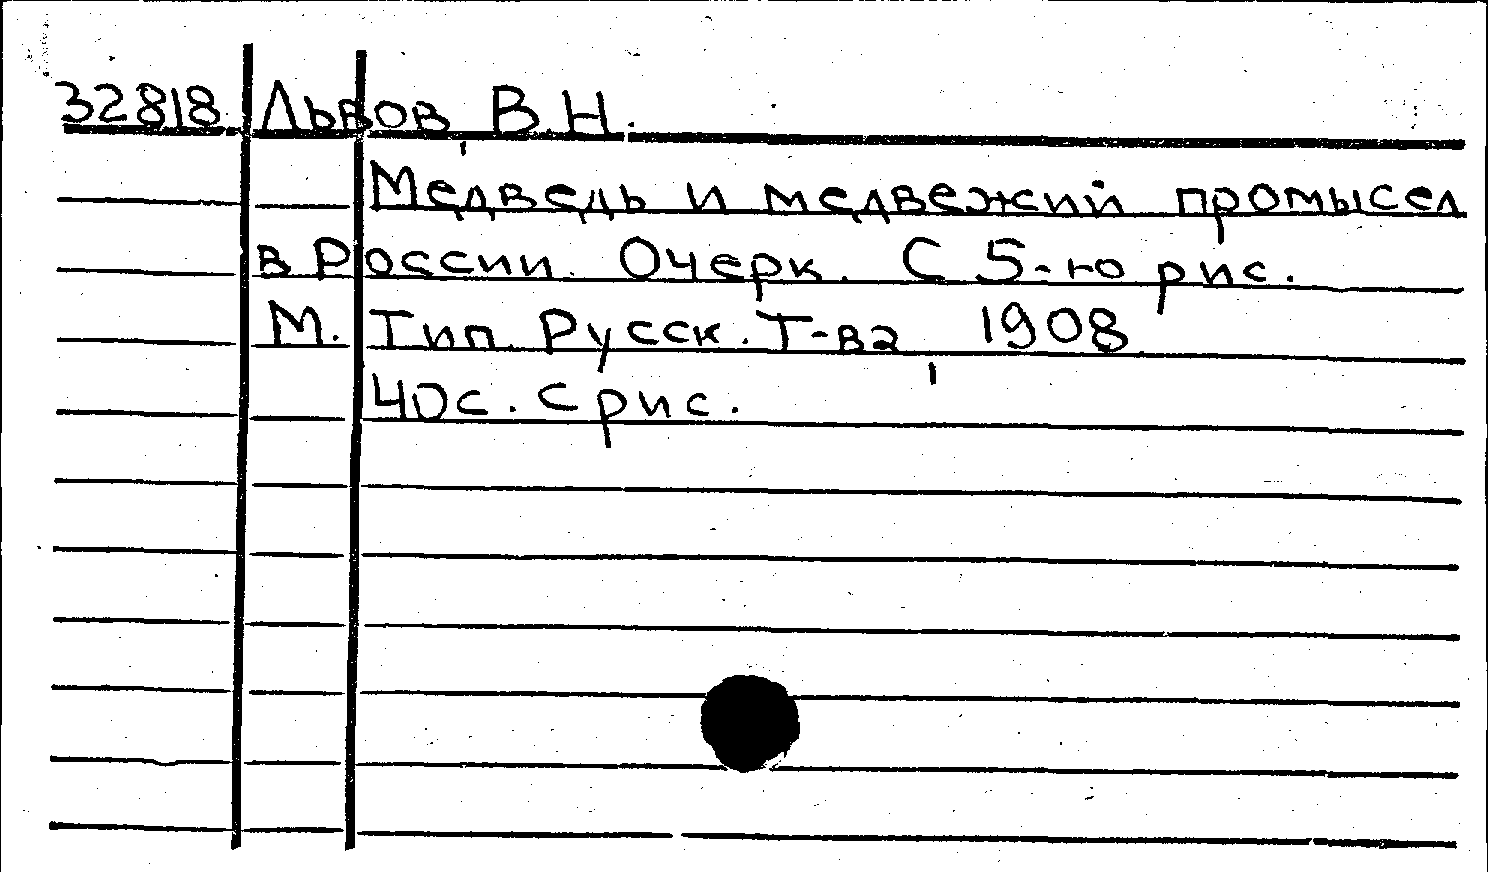 32818 Львов, В.Н.
Медведь и медвежий промысел
в России. Очерк. С 5-ю рис.
М. Тип. Русск. Т-ва, 1908
40с. с рис.